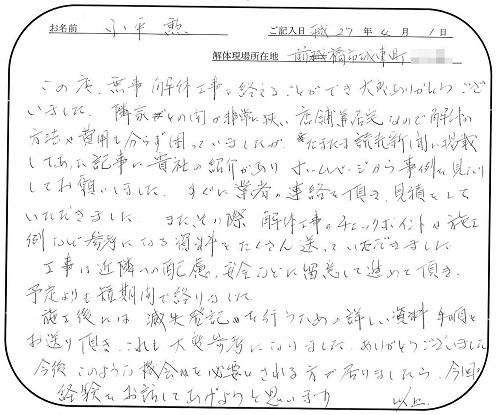 お名前 小平 勲 ご記入日 平成 27 年 4 月 1 日
解体現場所在地 前橋市城東町
この度、無事解体工事を終えることができ大変ありがとうござ
いました。隣家との間が非常に狭い店舗兼居宅なので解体の
方法や費用も分らず困っていましたが、たまたま読売新聞に掲載
してあった記事に貴社の紹介がありホームページから事例を見たり
してお願いしました。すぐに業者の連絡を頂き、見積をして
いただきました。また、その際解体工事のチェックポイントや施工
例など参考になる資料をたくさん送っていただきました
工事は近隣への配慮、安全などに留意して進めて頂き、
予定よりも短期間で終りました。
施工後には滅失登記を行うための詳しい資料手順を
お送り頂き、これも大変参考になりました。ありがとうございました
今後このような機会を必要とされる方が居りましたら、今回の
経験をお話してあげようと思います 以上